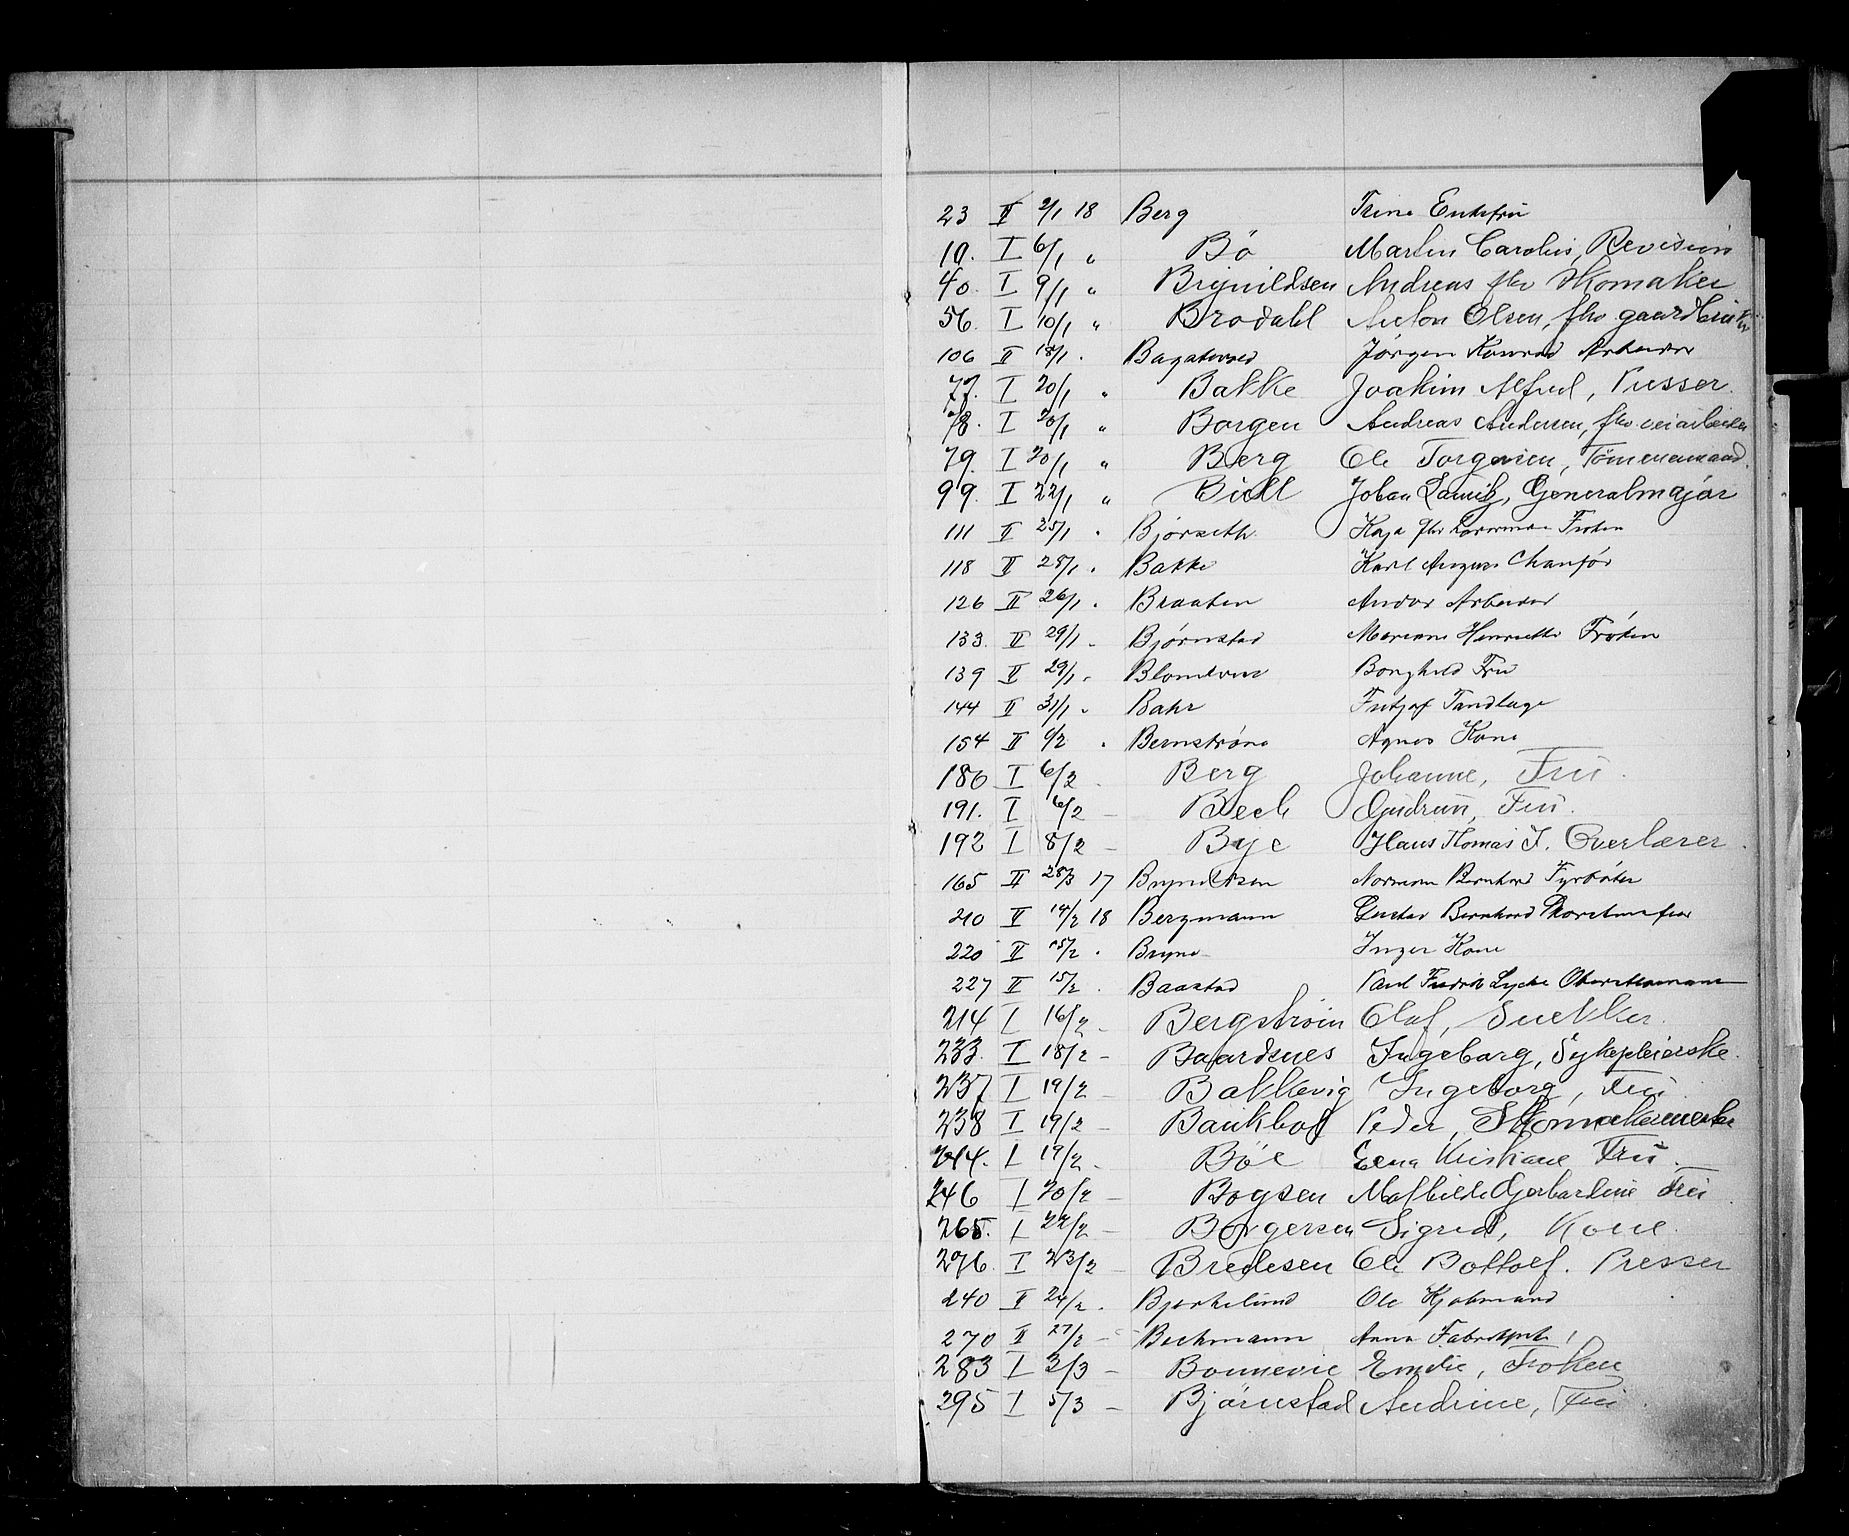 23 II 2/1 18 Berg Trine Enkefru
10. I 6/1 " Bö Martin Carolius, Revisiun
40. I 9/1 " Brynildsen Andreas fhv Skomaker
56. I 10/1 " Brodahl Anton Olsen, fhv. gaardbruk
106 II 18/1 . Jörgen Konrad Arbeider
77. I 20/1 " Bakke Joakim Alfred, Pusser.
78. I 20/1 " Borgen Andreas Andersen, fhv. veiarbeider
79. I 20/1 " Berg Ole Torgersen, Tömmermand.
99. I 22/1 " Bull Johan Generalmajor
111 II 25/1 . Björseth Kaja fhv Lærerinde Fröken
118 II 28/1 . Bakke Karl August Chauför
126 II 26/1 . Braaten Andor Arbeider
133. II 29/1 - Björnstad Mariane Henriette Fröken
139 II 29/1 . Borghild Fru
144 II 31/1 . Bahr Fritjof Tandlæge
154 II 6/2 . Bernström Agnes Kone
180 I 6/2 - Berg Johanne, Fru.
191. I 6/2 - Bech Gudrun, Fru.
192 I 8/2 - Bye Hans Thomas J. Overlærer.
165 II 28/3 17 Bernhard Fyrböter
210 II 14/2 18 Bergmann Gustav Bernhard Skorstensfeier
220 II 15/2 . Bryne Inger Kone
227 II 15/2 . Baastad Paul Fredrik Lycke
214 I 16/2 - Bergström Olaf, Snekker.
233. I 18/2 - Baardsnes Ingeborg, Sykepleierske.
237 I 19/2 - Bakkevig Ingeborg, Fru
238 I 19/2 - Baukhol Peder, Skomakermester
244. I 19/2 - Böe Lena Kristiane Fru.
246 I 20/2 - Bogsen Mathilde Gerhardine Fru.
265. I 22/2 - Borgersen Sigrid, Kone
276. I 23/2 - Bredesen Ole Bottolf. Presser
240 II 24/2 . Bjerkelund Ole Kjöbmand
270 II 27/2 - Bechmann Anna
283 I 3/3 - Bonnevie Emilie, Fröken
295 I 5/3 - Björnstad Andrine, Fru.